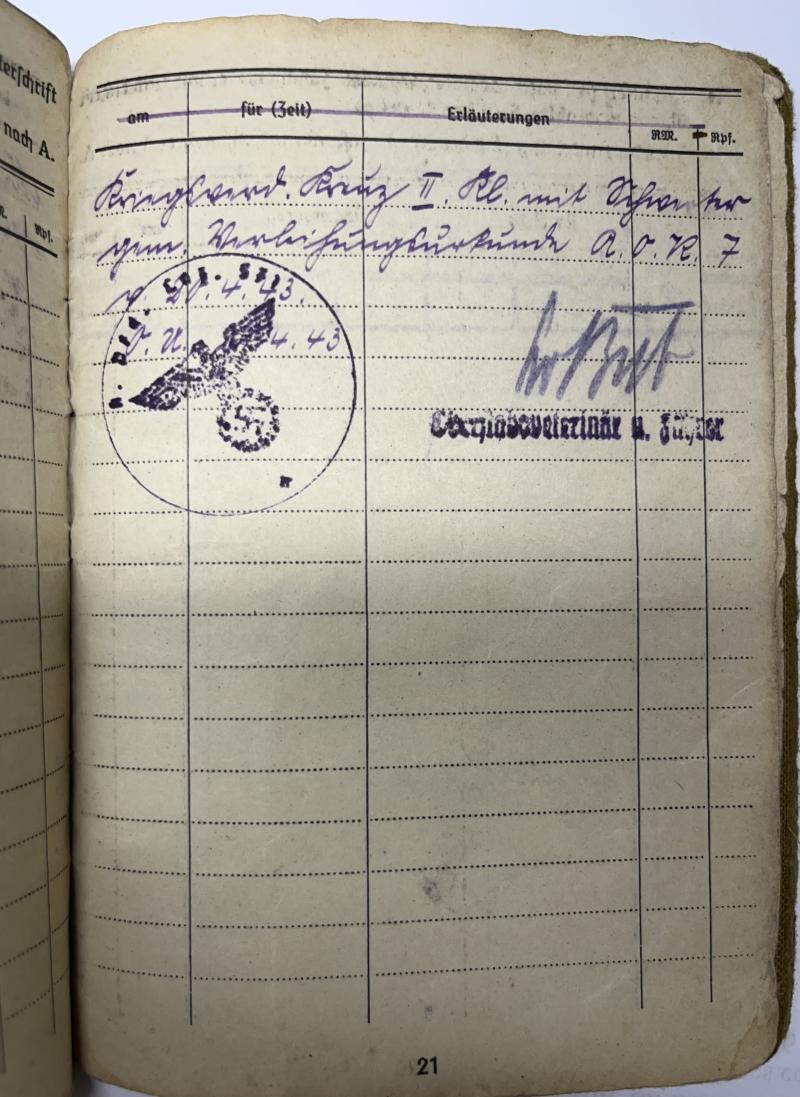 terschrift
nach A.
Rpf.
am für (Zeit) Erläuterungen RM. Rpf.
Kriegsverd. Kreuz II. Kl. mit Schwerter
gem. Verleihungsurkunde A.O.K. 7
v. 4.43.
O.U. 4.43
Oberstabsveterinär u. Führer
21